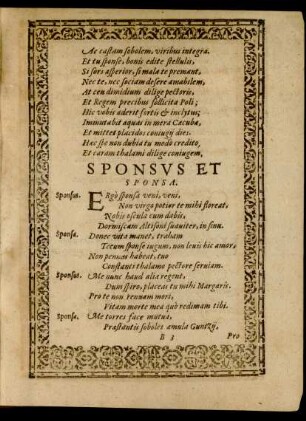 Ac castam sobolem, viribus integra.
Et tu sponse, bonis edite stellulis,
Si sors asperior, si mala te premant,
Nec te, nec sociam desere amabilem,
At ceu dimidium dilige pectoris,
Et Regem precibus sollicita Poli;
Hic vobis aderit fortis & inclytus;
Immutabit aquas in mera Cæcuba,
Et mittet placidos coniugij dies.
Hac spe non dubia tu modò credito,
Et caram thalami dilige coniugem,
SPONSVS ET
SPONSA.
Sponsus. ERgò sponsa veni, veni,
Non virgo potior te mihi splereat,
Nobis oscula cum dabis,
Dormiscam Altisoni suaviter, in sinu.
Sponsa. Donec vita manet, traham
Tecum sponse iugum, non levis hic amor,
Non pennas habeat, tuo
Constans thalamo pectore serviam.
Sponsus. Me nunc haud alia regent,
Dum spiro, placeas tu mihi Margaris.
Pro te non renuam mori,
Vitam morte mea quò redimam tibi.
Sponsa. Me torres face mutuâ,
Præstantis soboles æmula Guntzij,
B 3 Pro